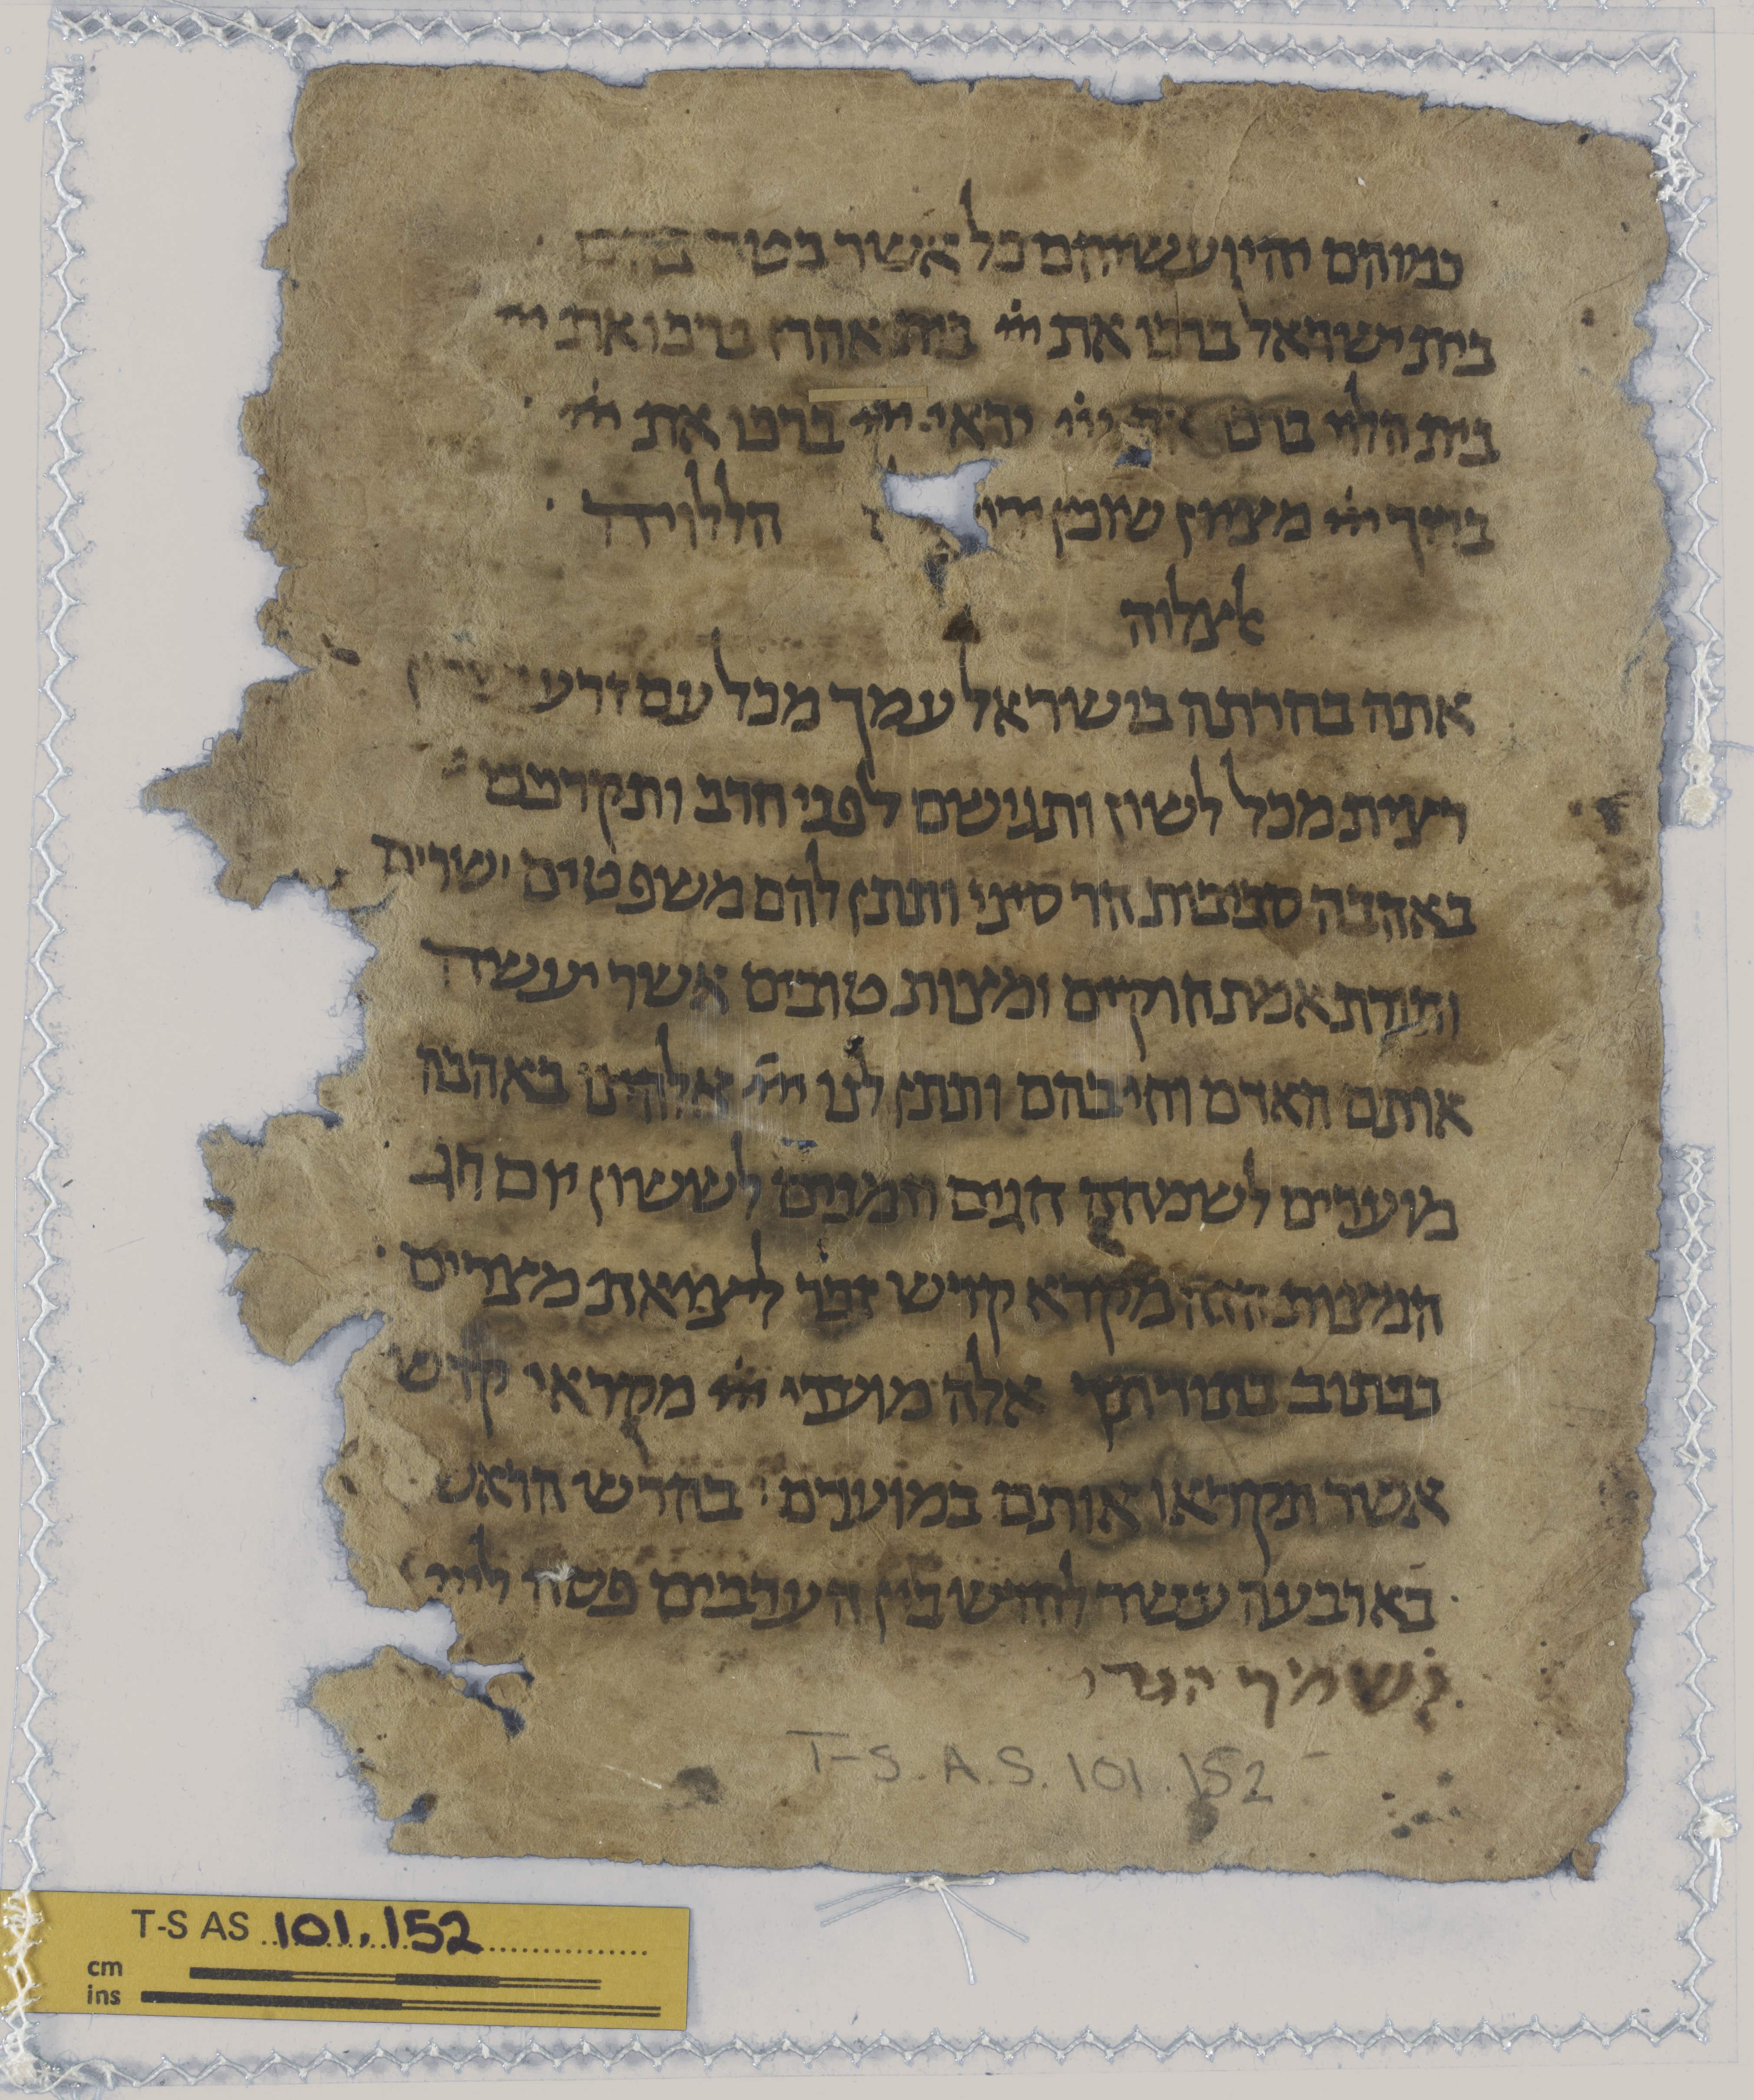 כמוהם יהיו עשיהם כל אשר בטח בהם
בית ישראל ברכו את ייי בית אהרן ברכו את ייי
בית הלוי ברכו את ייי יראי ייי ברכו את ייי
ברוך ייי מציון שוכן הללויה
אצלוה
אתה בחרתה בישראל עמך מכל עם זרע
רצית מכל לשון ותגישם לפני חרב ותקרבם
באהבה סביבות הר סיני ותתן להם משפטים ישרים
ותורת אמת חוקים ומצות טובים אשר יעשה
אותם האדם וחי בהם ותתן לנו ייי אלהינו באהבה
מועדים לשמחה חגים וזמנים לששון יום חג
המצות הזה מקרא קודש זכר ליציאת מצרים
ככתוב בתורתך אלה מועדי ייי מקראי קדש
אשר תקראו אותם במועדם בחדש הראש
בארבעה עשר לחדש בין הערבים פסח לייי
T-S. A.S. 101.152
T-S AS 101.152
cm
ins